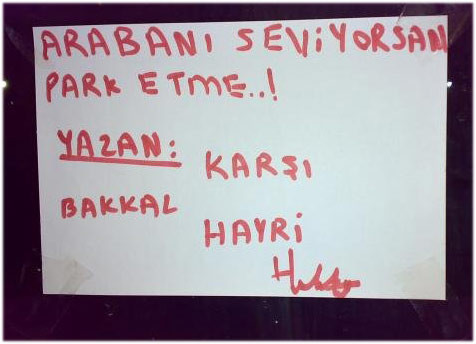 ARABANI SEViYORSAN
PARK ETME..!
YAZAN:
KARŞI
BAKKAL
HAYRi